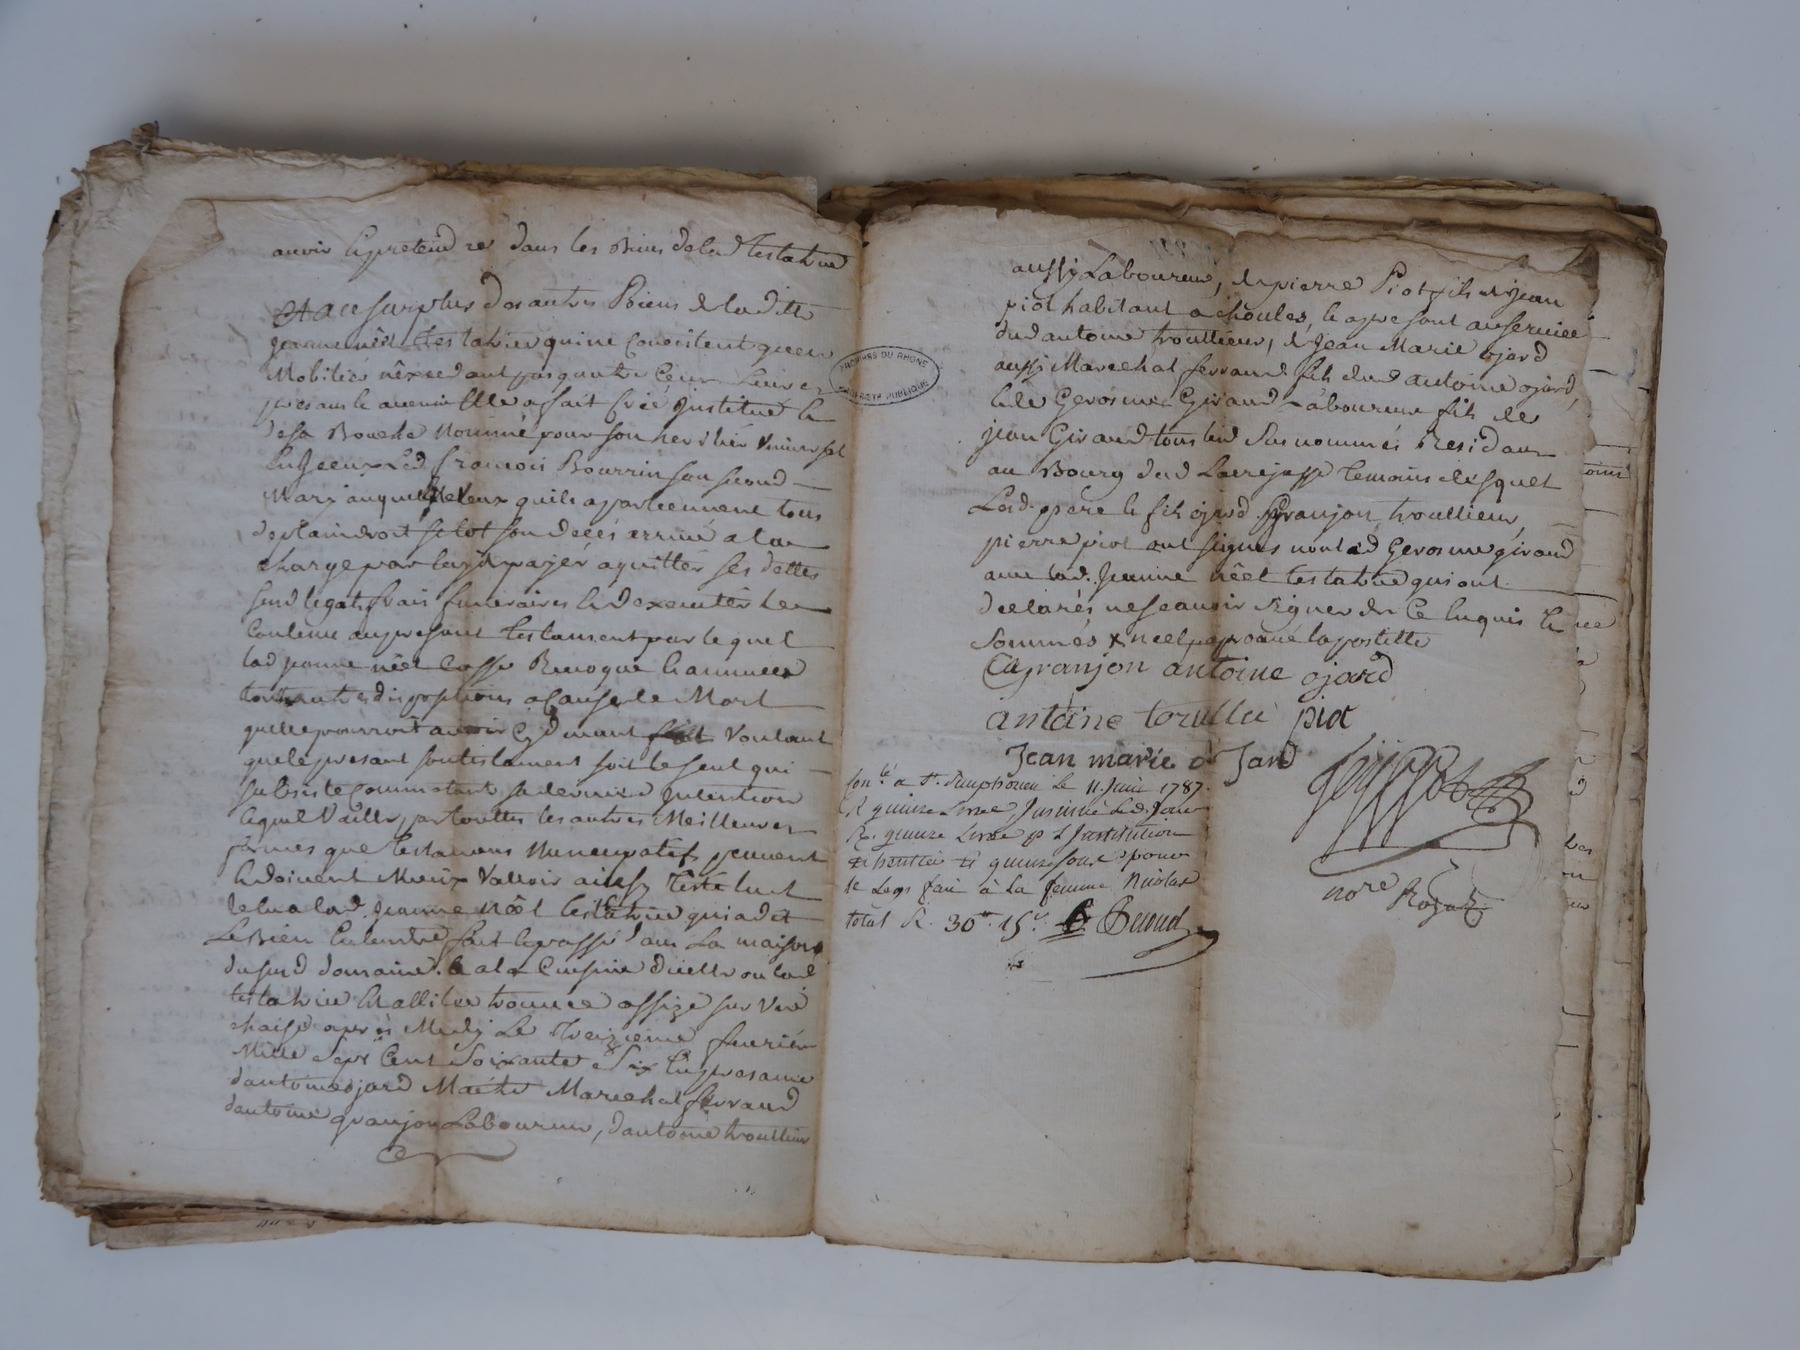 avoir & pretendre dans les Biens de lad testatrice
Et au surplus des autres Biens de laditte
jeanne nèel testatrice qui ne consistent qu'en
Mobilier nêxcedant pas quatre Cent Livres
presans & avenir Elle a fait crée Justitué &
de sa Bouche Nommé pour son heritiér Universel
led françois Bourrin son second
Mary auquel Elle veux quils appartiennent tous
de plain droit sitot son decés arrivé a la
charge par luy d payér aquittér ses dettes
susd legats frais funeraires & dexecutér le
Contenu au present testament par lequel
lad jeanne nèel Casse Revoque & annulle
touttes autres dispositions a Cause de Mort
quelle pourroit avoir Cy devant fait Voulant
que le presant son testament soit le seul qui
subsiste Comme etant sa derniere Intention
lequel Vaille par touttes les autres Meilleures
formes que testamens Nuncupatifs peuvent
& doivent Mieux Valloir ainsy testé lu et
relu a lad. Jeanne Nèel testatrice qui a dit
le Bien Entendre fait & passé dans La maison
du susd domaine & a la Cuisine dicelle ou lad
testatrice Et allitée trouvée assize sur Une
chaise aprés Midy Le Treizieme fevriér
Mille Sept Cent Soixante & Six En presance
dantoine ojard Maitre Marechal ferrand
dantoine granjon Laboureur, dantoine troullieur
aussy Laboureur, de pierre Piot fils de jean
piot habitant a choules, & a present au service
dud antoine troullieur, de Jean Marie ojard
aussy Marechal ferrand fils dud antoine ojard,
& de Gerosme Giraud Laboureur fils de
jean Giraud tous lesd susnommés Residans
au Bourg dud Larrejasse temoins desquels
Lesd. père & fils ojard Granjon troullieur,
pierre piot ont signés non led Gerosme giraud
avec lad. Jeanne nèel testatrice qui ont
declarés ne scavoir signer de Ce Enquis &
sommés x nèel approuvé la postille
granjon antoine ojard
antoine torullié piot
Jean marie ôJard
Con.lé a St. Simphorien le 11. Juin 1787.
R quinze Livres Insinué Led. Jour
R. quinze Livres p L'Institution
& quinze sous pour
le Legs fait à La femme Nicolas
total R. 30tt. 15s.
nore Royal
ARCHIVES DU RHONE
PROPRIÉTÉ PUBLIQUE